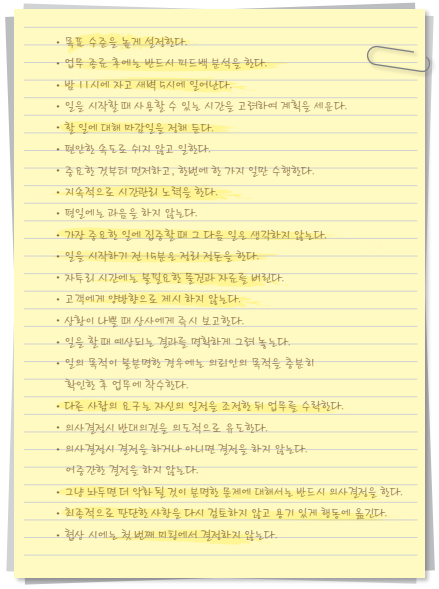 • 목표 수준을 높게 설정한다.
• 업무 종료 후에는 반드시 피드백 분석을 한다.
• 밤 11시에 자고 새벽 5시에 일어난다.
• 일을 시작할 때 사용할 수 있는 시간을 고려하여 계획을 세운다.
• 할 일에 대해 마감일을 정해 둔다.
• 편안한 속도로 쉬지 않고 일한다.
• 중요한 것부터 먼저하고, 한번에 한 가지 일만 수행한다.
• 지속적으로 시간관리 노력을 한다.
• 평일에는 과음을 하지 않는다.
• 가장 중요한 일에 집중할 때 그 다음 일은 생각하지 않는다.
• 일을 시작하기 전 15분은 정리 정돈을 한다.
• 자투리 시간에는 불필요한 물건과 자료를 버린다.
• 고객에게 양방향으로 제시 하지 않는다.
• 상황이 나쁠 때 상사에게 즉시 보고한다.
• 일을 할 때 예상되는 결과를 명확하게 그려 놓는다.
• 일의 목적이 불분명한 경우에는 의뢰인의 목적을 충분히
확인한 후 업무에 착수한다.
• 다른 사람의 요구는 자신의 일정을 조정한 뒤 업무를 수락한다.
• 의사결정시 반대의견을 의도적으로 유도한다.
• 의사결정시 결정을 하거나 아니면 결정을 하지 않는다.
어중간한 결정을 하지 않는다.
• 그냥 놔두면 더 악화 될 것이 분명한 문제에 대해서는 반드시 의사결정을 한다.
• 최종적으로 판단한 사항을 다시 검토하지 않고 용기 있게 행동에 옮긴다.
• 협상 시에는 첫 번째 미팅에서 결정하지 않는다.